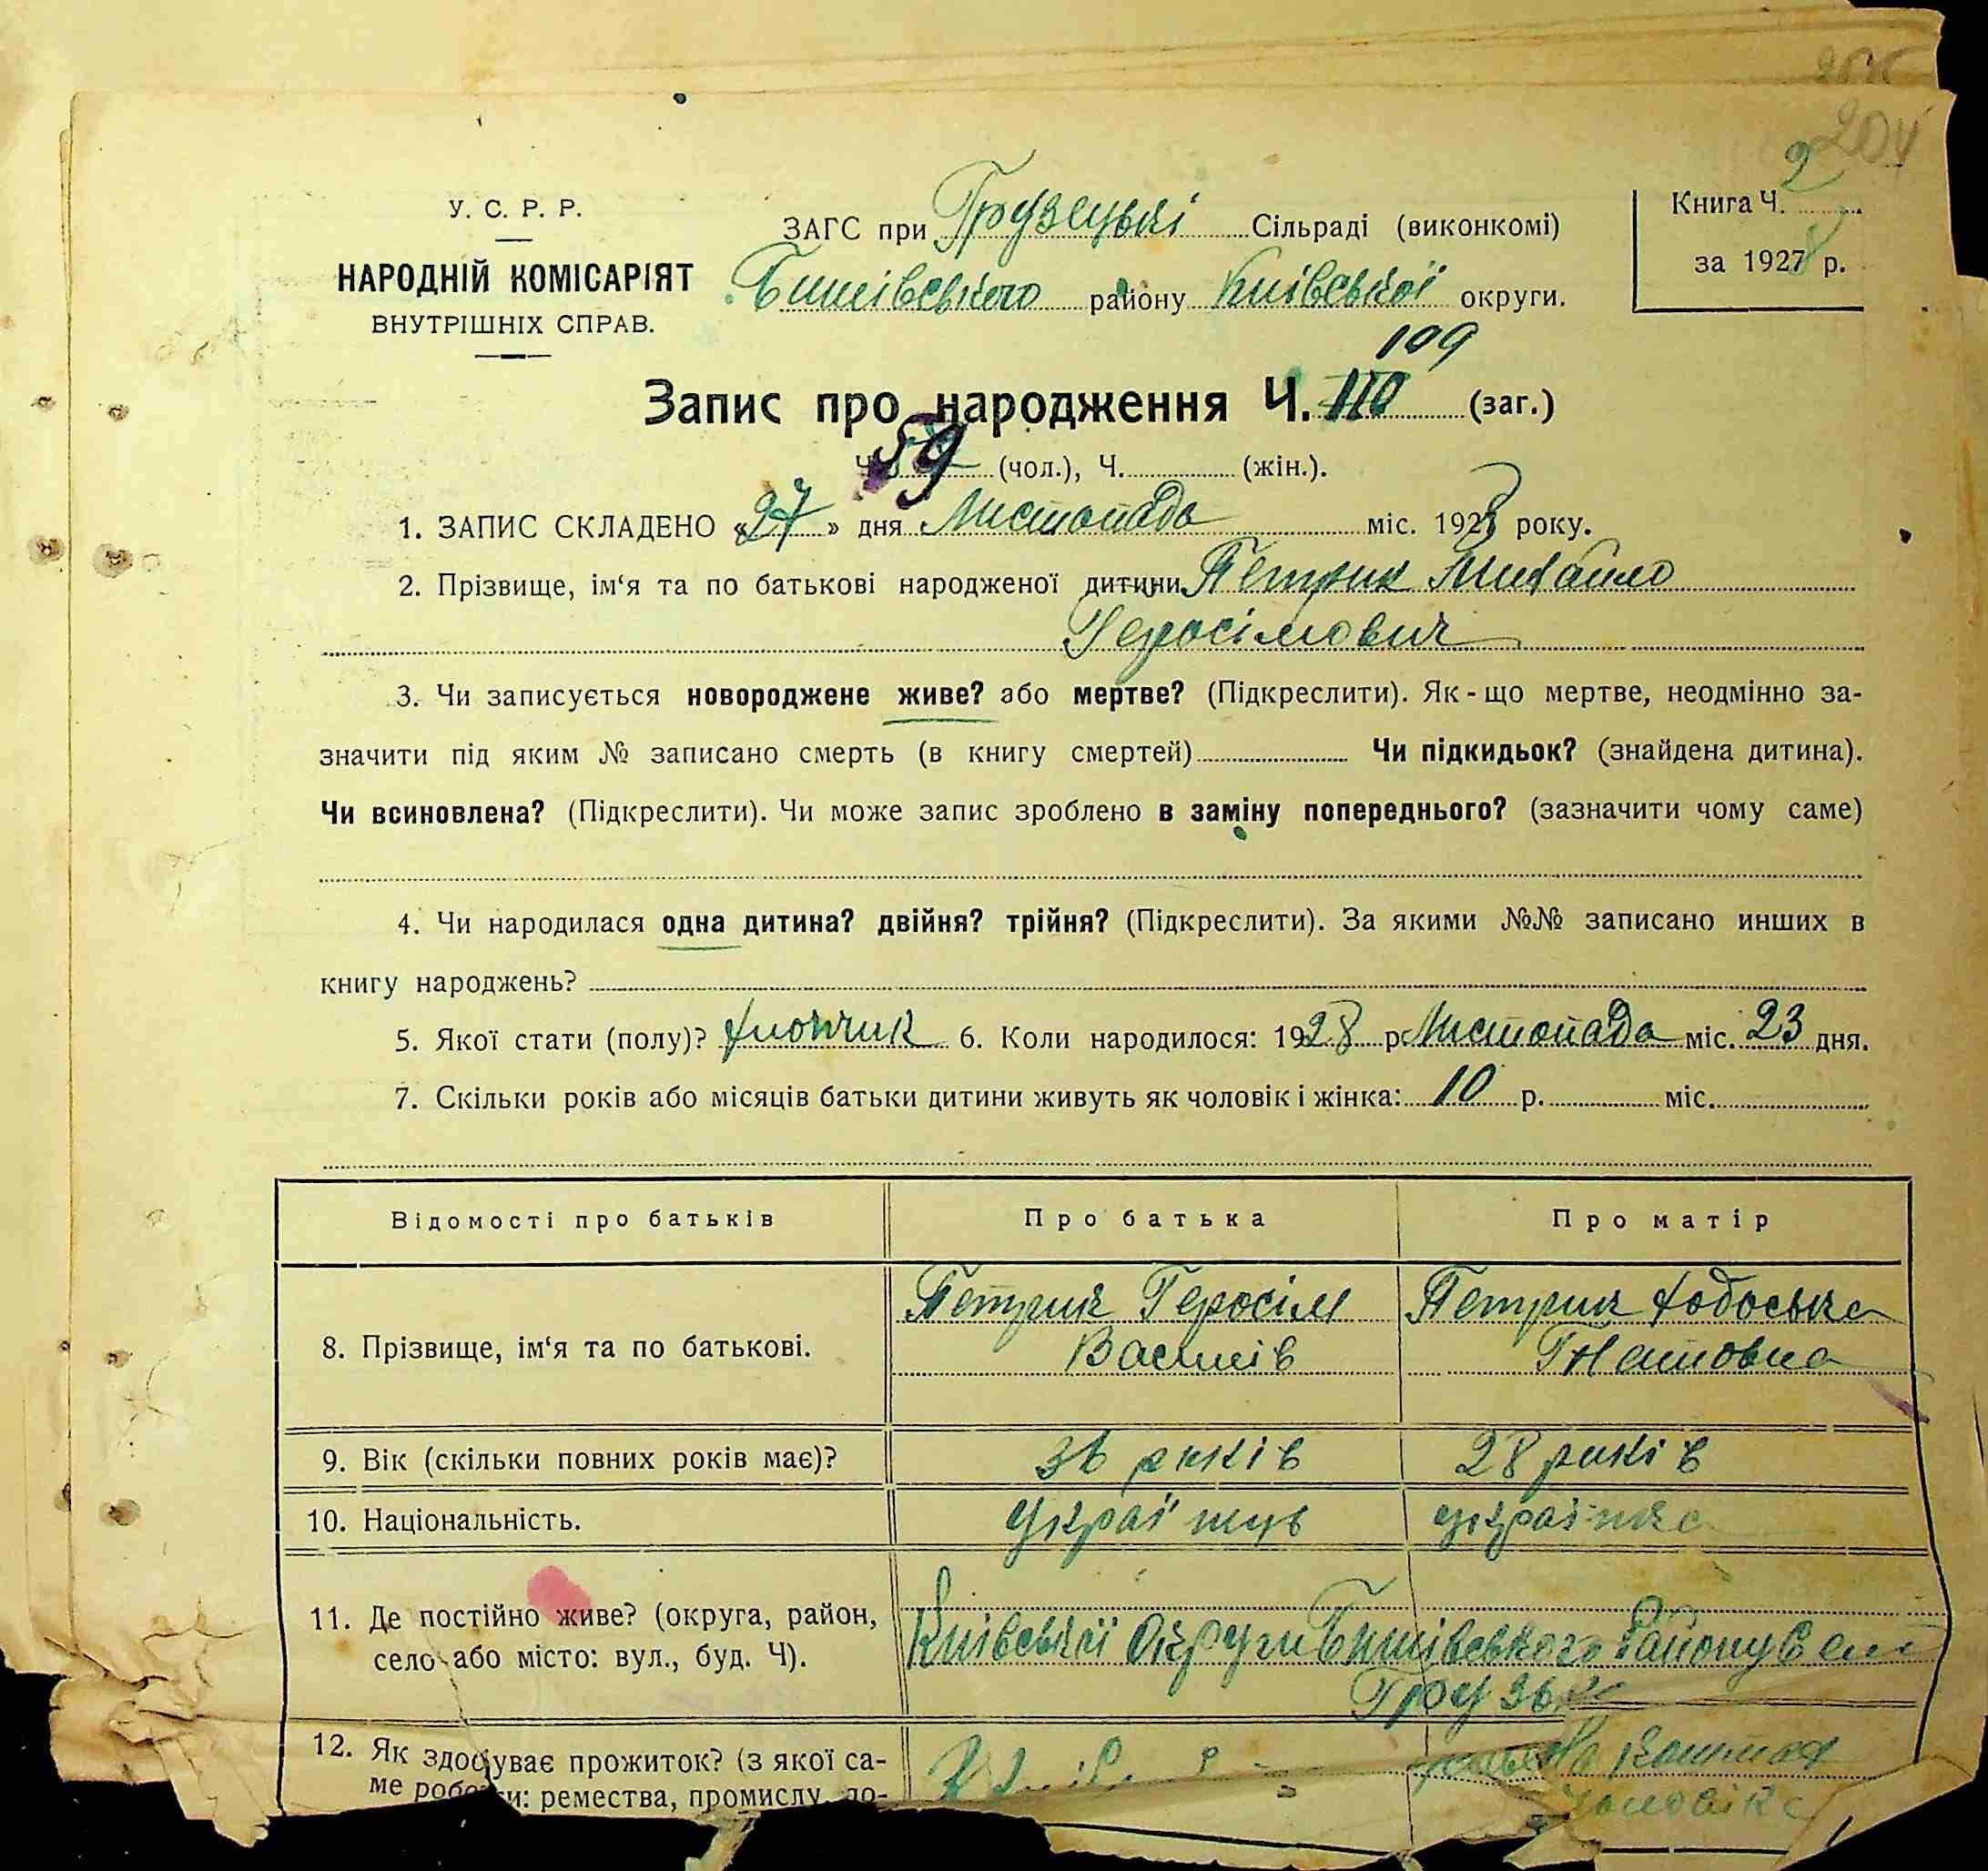 204
У. С. Р. Р.
НАРОДНІЙ КОМІСАРІЯТ
ВНУТРІШНІХ СПРАВ.
ЗАГС при Грузецькі Сільраді (виконкомі)
Бишівського району Київської округи.
Книга Ч. 2
за 1928 р.
109
Запис про народження Ч. 110 (заг.)
Ч. 59 (чол.), Ч. (жін.).
1. ЗАПИС СКЛАДЕНО «27» дня Листопада міс. 1928 року.
2. Прізвище, ім‘я та по батькові народженої дитини Петрик Михайло
Геросімович
3. Чи записується новороджене живе? або мертве? (Підкреслити). Як-що мертве, неодмінно за-
значити під яким № записано смерть (в книгу смертей) Чи підкидьок? (знайдена дитина).
Чи всиновлена? (Підкреслити). Чи може запис зроблено в заміну попереднього? (зазначити чому саме)
4. Чи народилася одна дитина? двійня? трійня? (Підкреслити). За якими №№ записано инших в
книгу народжень?
5. Якої стати (полу)? хлопчик 6. Коли народилося: 1928 р. Листопада міс. 23 дня.
7. Скільки років або місяців батьки дитини живуть як чоловік і жінка: 10 р. міс.
Відомості про батьків Про батька Про матір
8. Прізвище, ім‘я та по батькові. Петрик Геросім Василів Петрик Ходоська Гнатовна
9. Вік (скільки повних років має)? 36 років 28 років
10. Національність. Українць українка
11. Де постійно живе? (округа, район,
село або місто: вул., буд. Ч).
Київської Округи Бишівського Району Село
Грузьке
12. Як здобуває прожиток? (з якої са-
ме роботи: ремества, промислу, до-
на кошти
чоловіка